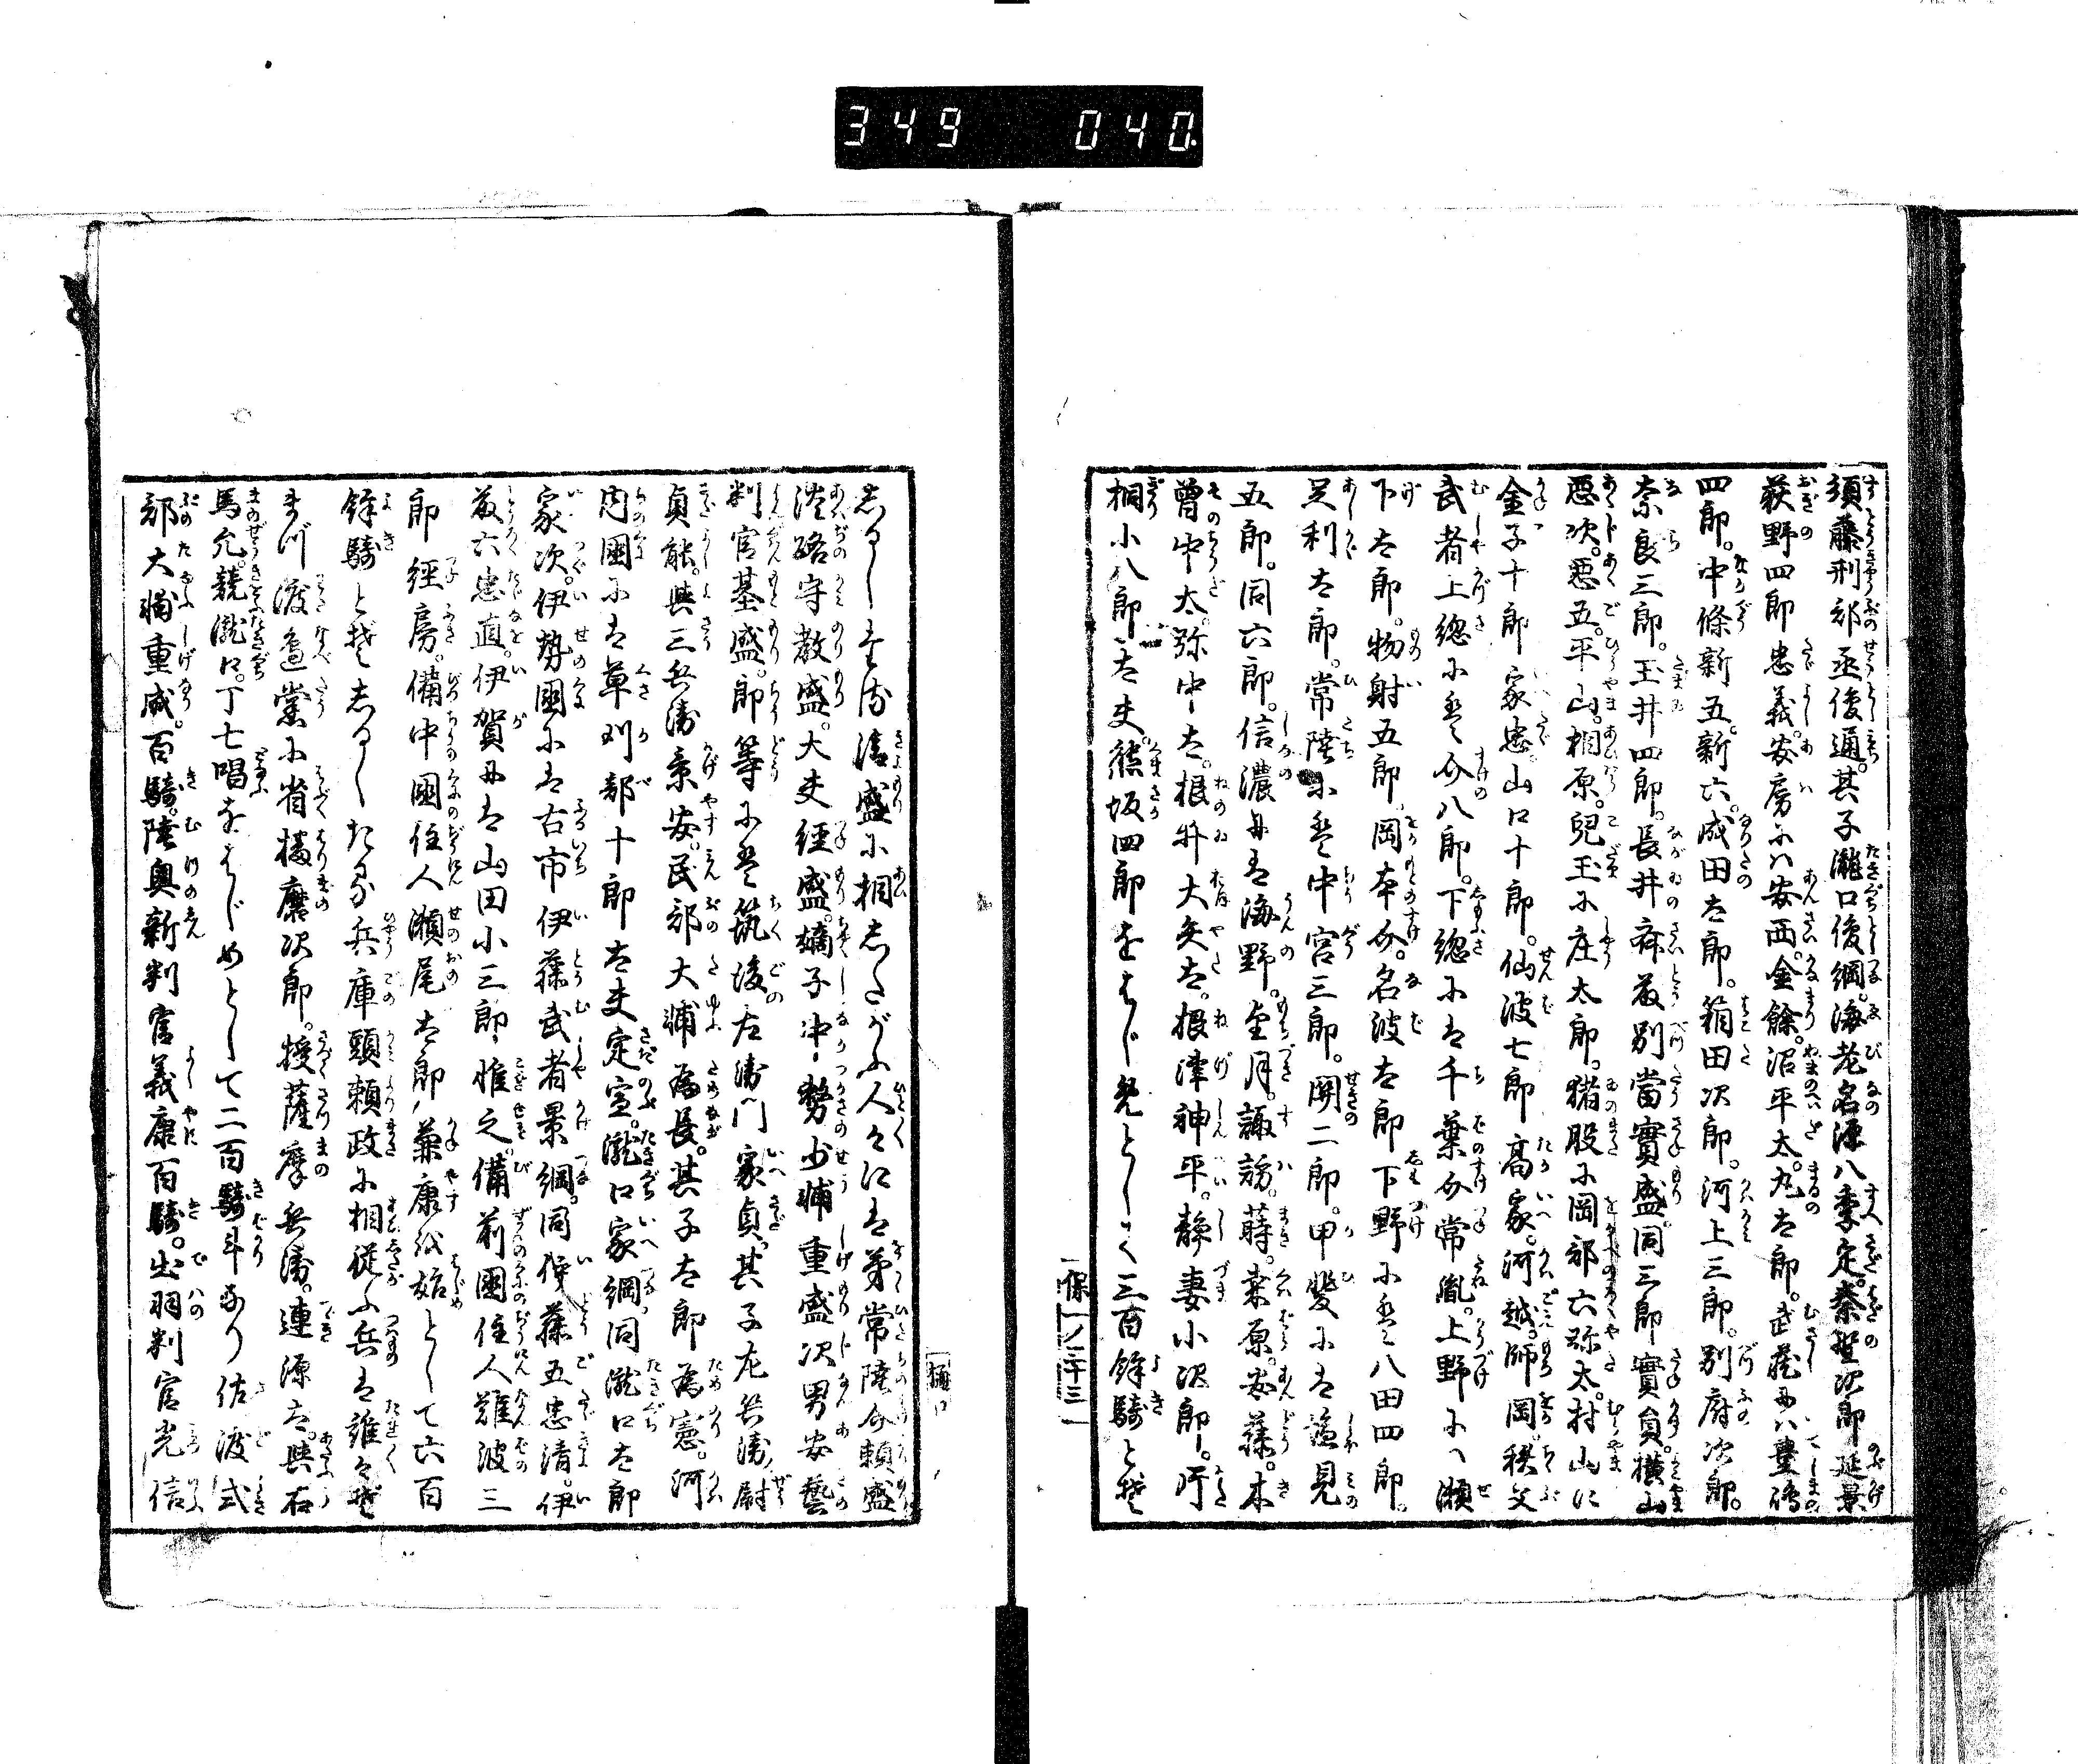 349 040
須藤刑部丞俊通。其子瀧口俊綱。海老名源八季定。秦野次郎延景
荻野四郎忠義。安房にハ安西。金餘。沼平太。丸太郎。武蔵にハ豊嶋
四郎。中條新五。新六。成田太郎。箱田次郎。河上三郎。別府次郎。
奈良三郎。玉井四郎。長井斎藤別當實盛。同三郎實員。横山
悪次。悪五。平山。相原。兒玉に庄太郎。猪股に岡部六弥太。村山に
金子十郎家忠。山口十郎。仙波七郎高家。河越。師岡。秩父
武者上總にハ介八郎。下総にハ千葉介常胤。上野にハ瀬
下太郎。物射五郎。岡本介。名波太郎下野にハ八田四郎。
足利太郎。常陸にハ中宮三郎。関二郎。甲斐にハ塩見
五郎。同六郎。信濃にハ海野。望月。諏訪。蒔。桒原。安藤。木
曽中太。弥中太。根井大矢太。根津神平。静妻小次郎。片
桐小八郎太夫。熊坂四郎をはじめとして三百餘騎とぞ
保一ノ二十三
しるしける清盛に相したがふ人々にハ弟常陸介頼盛
淡路守教盛。大夫経盛。嫡子中務少輔重盛次男安藝
判官基盛。郎等にハ筑後左衛門家貞。其子左兵衛尉
貞能。與三兵衛景安。民部大輔為長。其子太郎為憲。河
内國にハ草刈部十郎太夫定宣。瀧口家綱。同瀧口太郎
家次。伊勢國にハ古市伊藤武者景綱。同伊藤五忠清。伊
藤六忠直。伊賀にハ山田小三郎惟之。備前國住人難波三
郎経房。備中國住人瀬尾太郎兼康を始として六百
餘騎とぞしるしたる兵庫頭頼政に相従ふ兵ハ誰々ぞ
まづ渡邉黨に省播磨次郎。授薩摩兵衛。連源太。與右
馬允。競瀧口。丁七唱をはじめとして二百騎斗なり佐渡式
部大輔重成。百騎。陸奥新判官義康百騎。出羽判官光信